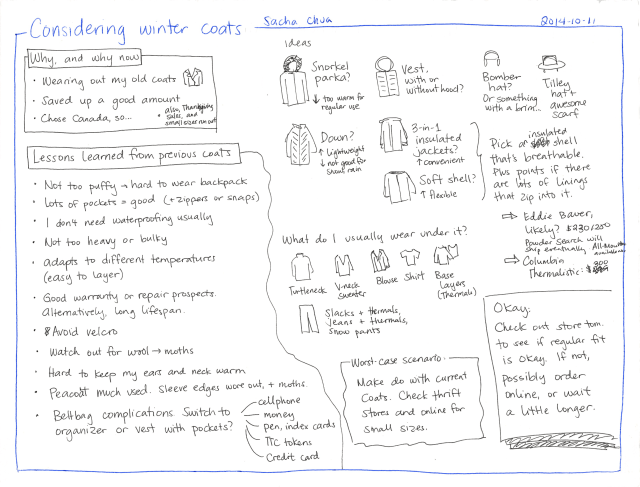 Considering winter coats
Sacha Chua
2014-10-11
Why, and why now
• Wearing out my old coats
• Saved up a good amount
• Chose Canada, so...
• also, Thanksgiving
sales, and
small sizes run out
Lessons learned from previous coats
• Not too puffy → hard to wear backpack
• Lots of pockets = good (+ zippers or snaps)
• I don't need waterproofing usually
• Not too heavy or bulky
• adapts to different temperatures
(easy to layer)
• Good warranty or repair prospects.
alternatively, long lifespan.
• Avoid velcro
• Watch out for wool → moths
• Hard to keep my ears and neck warm
• Peacoat much used. Sleeve edges wore out, + moths.
• Beltbag complications. Switch to
organizer or vest with pockets?
cellphone
money
pen, index cards
TTC tokens
Credit card
ideas
Snorkel
parka?
↓ too warm for
regular use
Vest,
with or
without hood?
Bomber
hat?
Or something
with a brim...
Tilley
hat +
awesome
scarf
Down?
↑ Lightweight
↓ not good for
snow/rain
3-in-1
insulated
jackets?
↑ convenient
Soft shell?
↑ flexible
Pick a insulated shell
that's breathable.
Plus points if there
are lots of linings
that zip into it.
⇒ Eddie Bauer,
likely? $230/200
Powder Search will
ship eventually
⇒ Columbia
Thermalistic:
What do I usually wear under it?
Turtleneck
V-neck
sweater
Blouse
Shirt
Base
layers
(Thermals)
Slacks + thermals,
jeans + thermals,
snow pants
Worst-case scenario.
Make do with current
coats. Check thrift
stores and online for
small sizes.
Okay:
Check out store tom.
to see if regular fit
is okay. If not,
possibly order
online, or wait
a little longer.